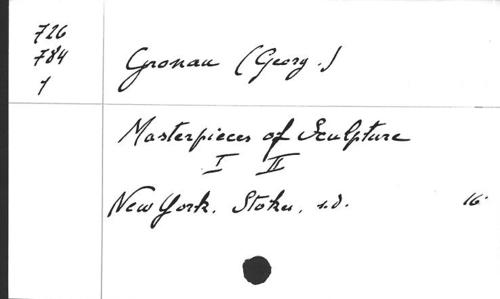 726
784
1
Gronau (Georg.)
Masterpieces of Sculpture
I II
New York. Stokes, s.d. 16°